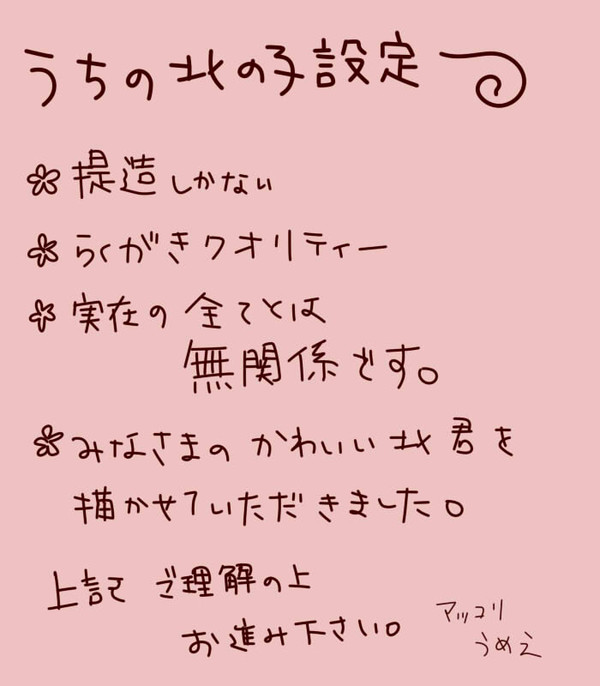 うちの北の子設定
提造しかない
らくがきクオリティー
実在の全てとは
無関係です。
みなさまのかわいい北君を
描かせていただきました。
上記ご理解の上
お進み下さい。
マッコリ
うめえ